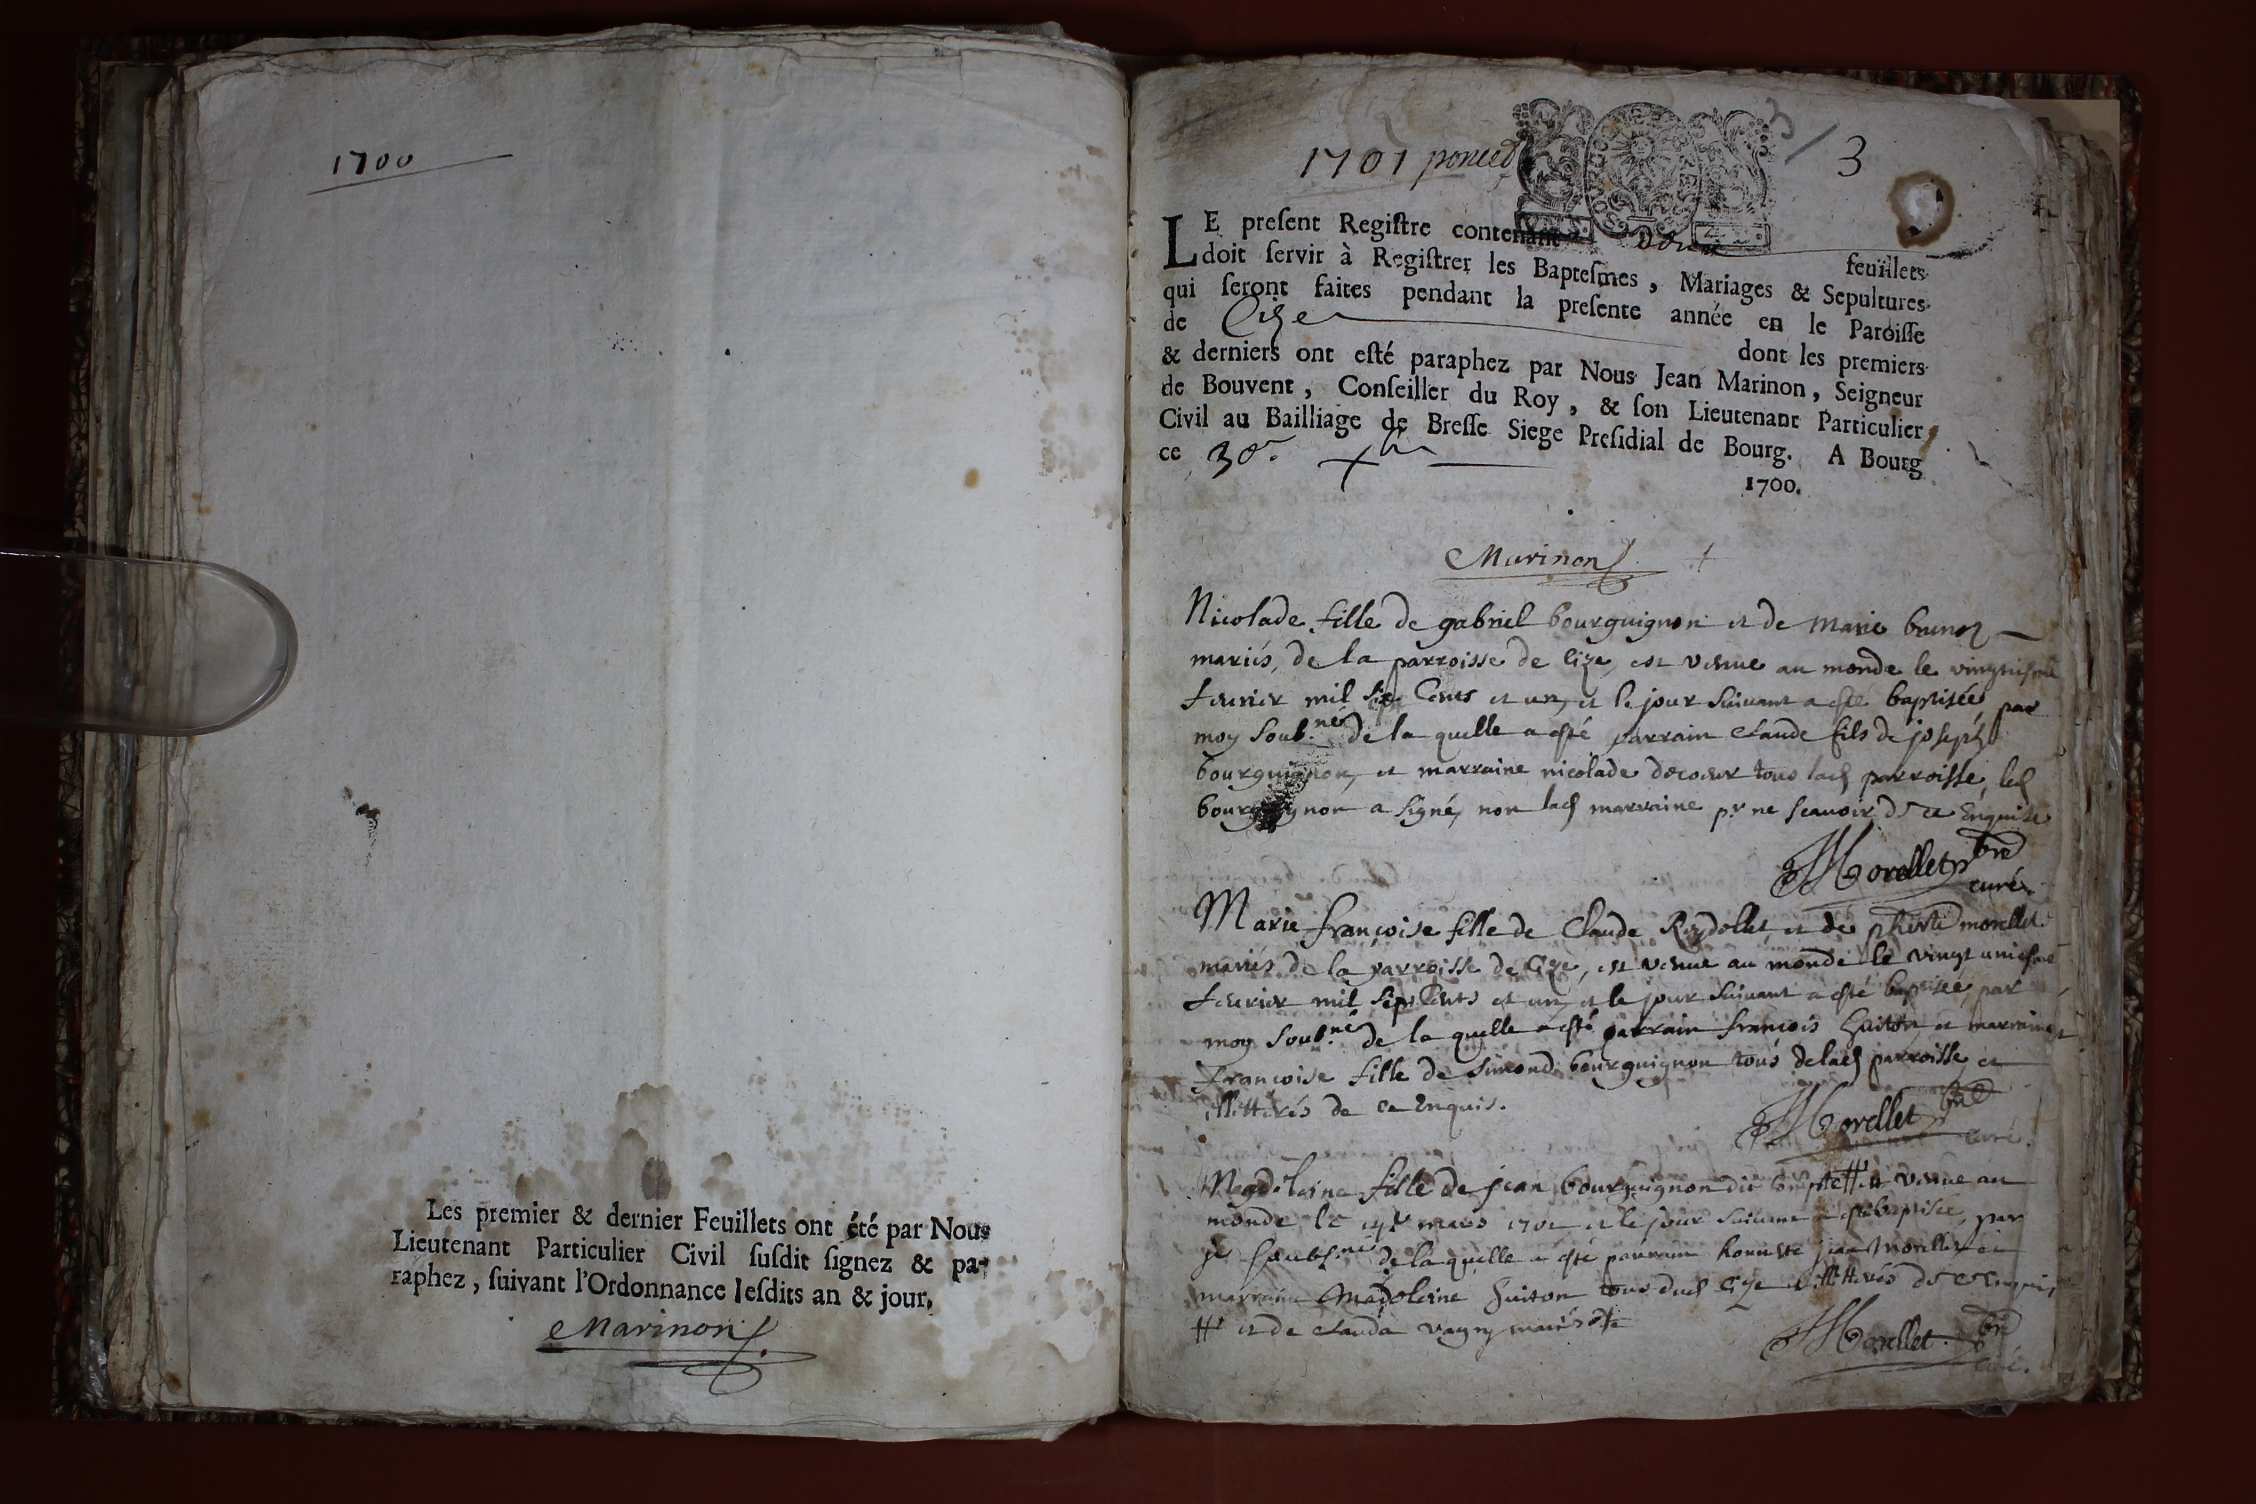 1700
Les premier & dernier Feuillets ont été par Nous
Lieutenant Particulier Civil ſuſdit ſignez & pa-
raphez, ſuivant l'Ordonnance leſdits an & jour.
Marinon
3
1701
3
LE preſent Regiſtre contenant feuillets
doit ſervir à Regiſtrer les Bapteſmes, Mariages & Sepultures
qui ſeront faites pendant la preſente année en le Paroiſſe
de Cize dont les premiers
& derniers ont eſté paraphez par Nous Jean Marinon, Seigneur
de Bouvent, Conſeiller du Roy, & ſon Lieutenant Particulier
Civil au Bailliage de Breſſe Siege Preſidial de Bourg. A Bourg
ce 30e. xbr 1700.
Marinon
Nicolade fille de gabriel bourguignon et de marie
mariés, de la parroisse de Cize, est venue au monde le
feurier mil sept Cents et un, et le jour suiuant a esté baptisée par
moy soub.né de la quelle a esté parrain claude fils de joseph
bourguignon, et marraine nicolade decoeur tous lad parroisse, led
bourguignon a signé, non lad marraine pr ne scauoir de ce Enquise
Morellet pbre
curé.
Marie françoise fille de Claude Reydellet et de morellet
mariés de la parroisse de Cize, est venue au monde le vingt uniesme
feurier mil sept Cents et un, et le jour suiuant a esté baptisée par
moy soub.né de la quelle a esté parrain françois guiton et marraine
françoise fille de Simond bourguignon tous delad parroisse et
illitterés de ce Enquis.
Morellet pbre
curé.
Magdeleine fille de jean bourguignon dit # est venue au
monde le mars 1701 et le jour suiuant a esté baptisée par
je soubs.né de la quelle a esté parrain honneste jean morellet et
marraine Madeleine guiton tous dud Cize illitterés de ce Enquis
# et de clauda mariés
Morellet pbre
curé.